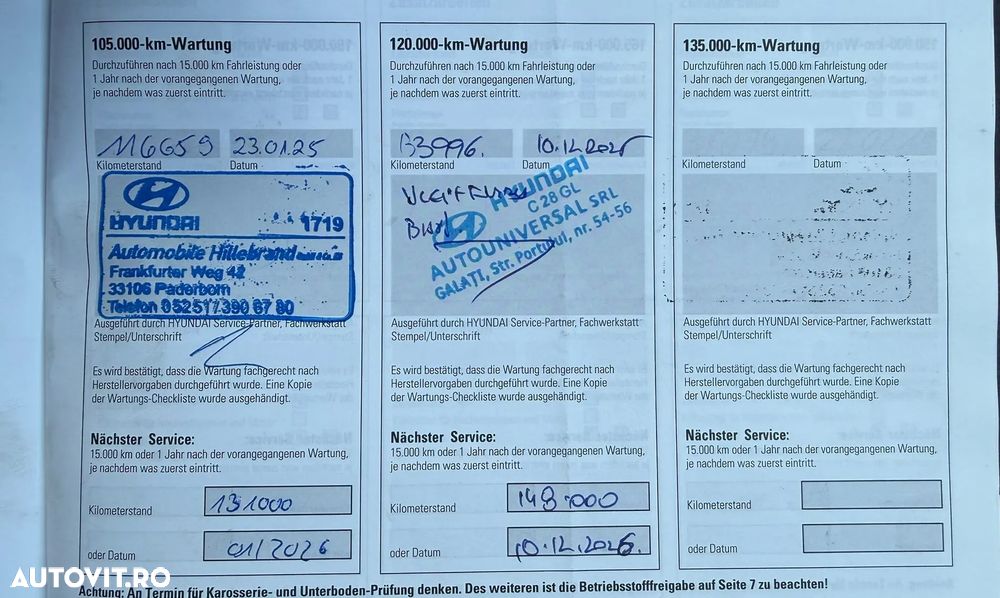 105.000-km-Wartung
Durchzuführen nach 15.000 km Fahrleistung oder
1 Jahr nach der vorangegangenen Wartung,
je nachdem was zuerst eintritt.
116659 23.01.25
Kilometerstand Datum
HYUNDAI 1719
Automobile Hillebrand
Frankfurter Weg 42
33106 Paderborn
Telefon 05251/390 67 80
Ausgeführt durch HYUNDAI Service-Partner, Fachwerkstatt
Stempel/Unterschrift
Es wird bestätigt, dass die Wartung fachgerecht nach
Herstellervorgaben durchgeführt wurde. Eine Kopie
der Wartungs-Checkliste wurde ausgehändigt.
Nächster Service:
15.000 km oder 1 Jahr nach der vorangegangenen Wartung,
je nachdem was zuerst eintritt.
Kilometerstand 131000
oder Datum 01/2026
120.000-km-Wartung
Durchzuführen nach 15.000 km Fahrleistung oder
1 Jahr nach der vorangegangenen Wartung,
je nachdem was zuerst eintritt.
133996. 10.12.2025
Kilometerstand Datum
HYUNDAI
C 28 GL
AUTOUNIVERSAL SRL
GALATI, Str. Portului, nr. 54-56
Ausgeführt durch HYUNDAI Service-Partner, Fachwerkstatt
Stempel/Unterschrift
Es wird bestätigt, dass die Wartung fachgerecht nach
Herstellervorgaben durchgeführt wurde. Eine Kopie
der Wartungs-Checkliste wurde ausgehändigt.
Nächster Service:
15.000 km oder 1 Jahr nach der vorangegangenen Wartung,
je nachdem was zuerst eintritt.
Kilometerstand 148.000
oder Datum 10.12.2026.
135.000-km-Wartung
Durchzuführen nach 15.000 km Fahrleistung oder
1 Jahr nach der vorangegangenen Wartung,
je nachdem was zuerst eintritt.
Kilometerstand Datum
Ausgeführt durch HYUNDAI Service-Partner, Fachwerkstatt
Stempel/Unterschrift
Es wird bestätigt, dass die Wartung fachgerecht nach
Herstellervorgaben durchgeführt wurde. Eine Kopie
der Wartungs-Checkliste wurde ausgehändigt.
Nächster Service:
15.000 km oder 1 Jahr nach der vorangegangenen Wartung,
je nachdem was zuerst eintritt.
Kilometerstand
oder Datum
Achtung: An Termin für Karosserie- und Unterboden-Prüfung denken. Des weiteren ist die Betriebsstofffreigabe auf Seite 7 zu beachten!
AUTOVIT.RO